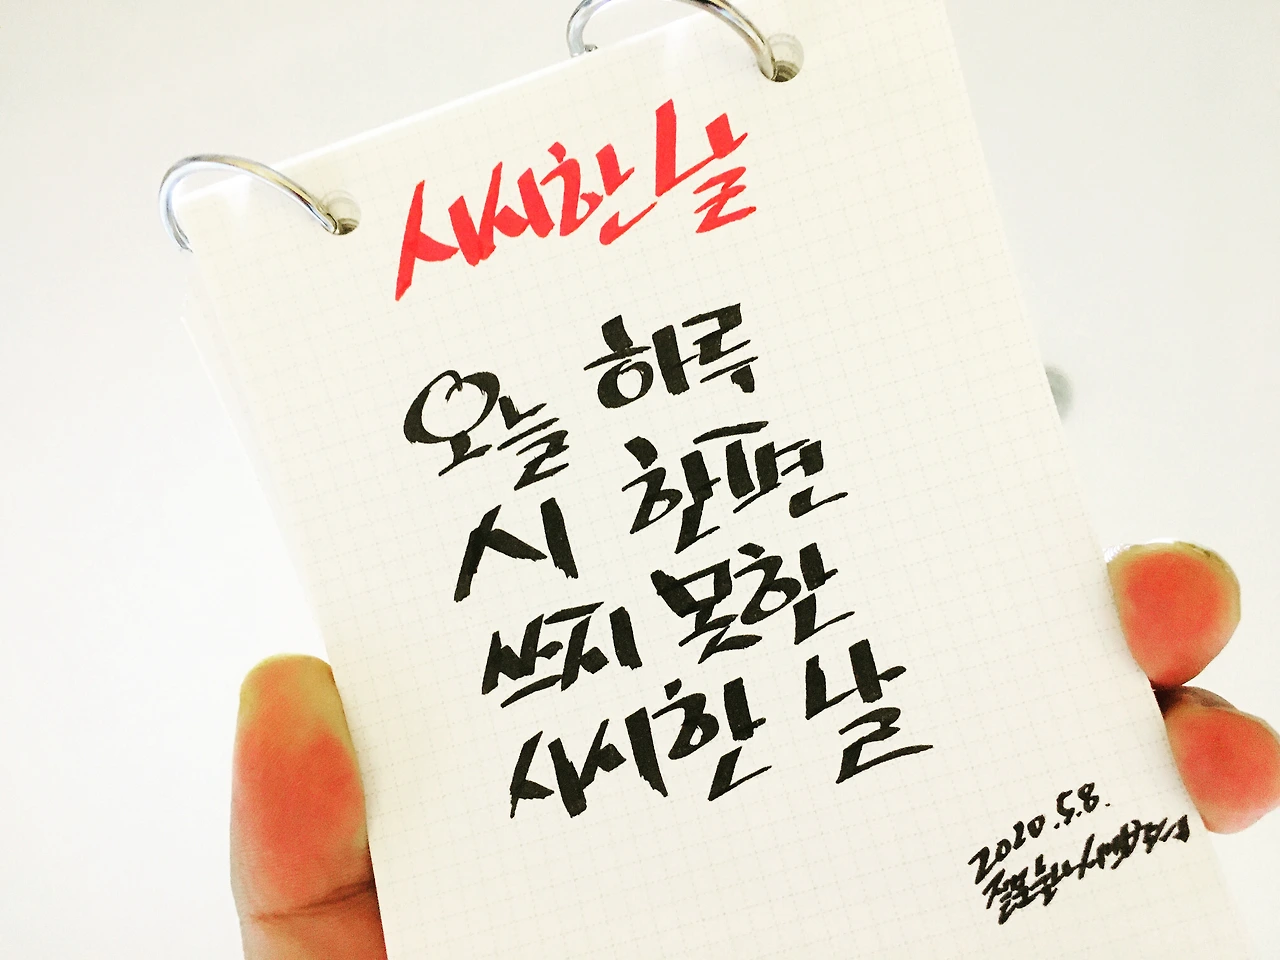 사시한 날
오늘 하루
시 한편
쓰지 못한
사시한 날
2020.5.8.